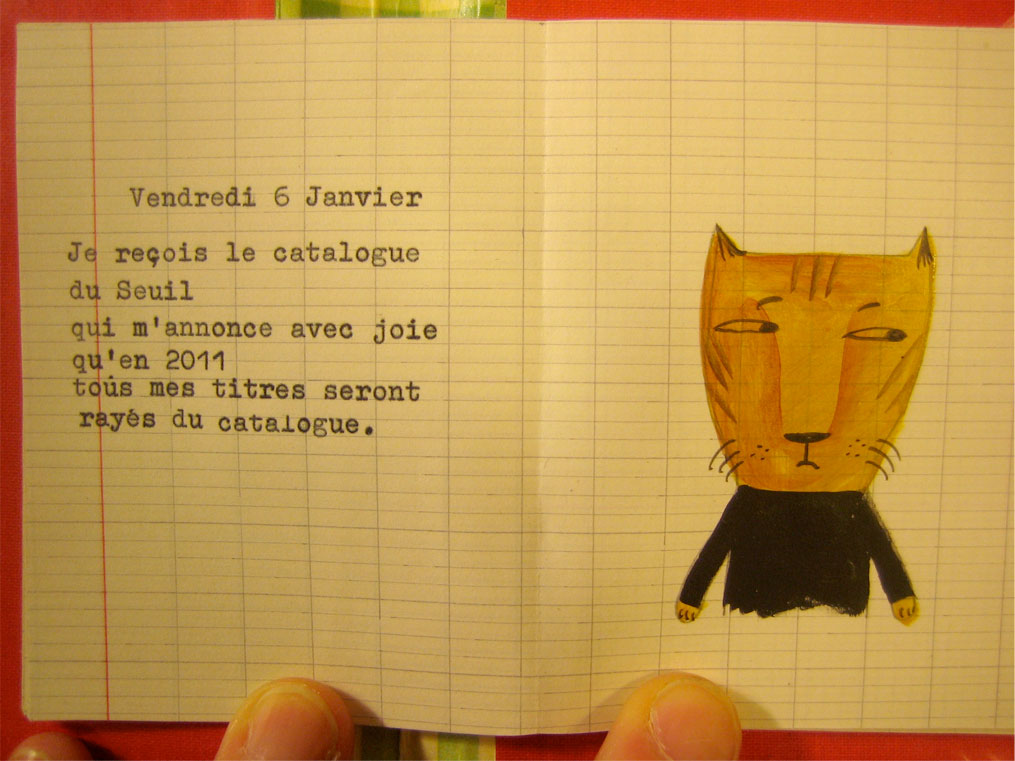 Vendredi 6 Janvier
Je reçois le catalogue
du Seuil
qui m'annonce avec joie
qu'en 2011
tous mes titres seront
rayés du catalogue.